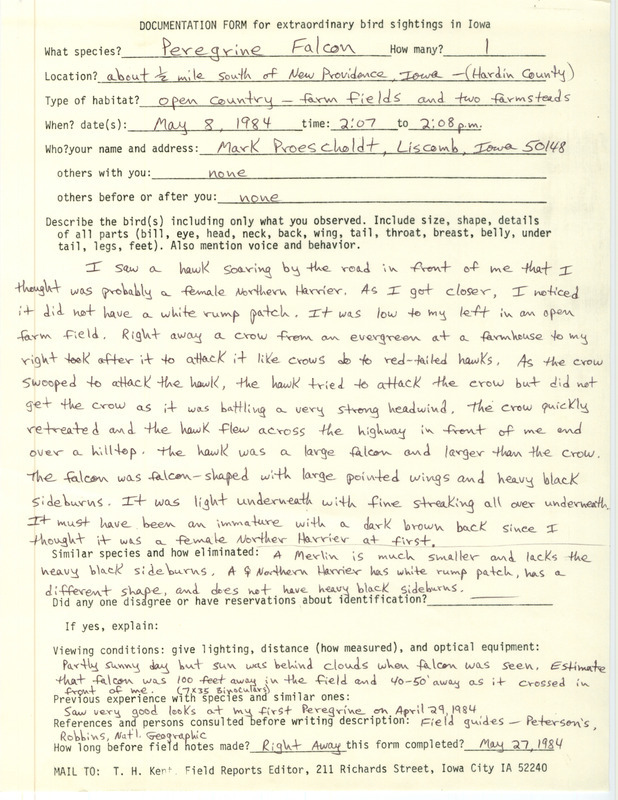 DOCUMENTATION FORM for extraordinary bird sightings in Iowa
What species? Peregrine Falcon How many? 1
Location? about ½ mile south of New Providence, Iowa - (Hardin County)
Type of habitat? open country - farm fields and two farmsteads
When? date(s): May 8, 1984 time: 2:07 to 2:08 p.m.
Who?your name and address: Mark Proescholdt, Liscomb, Iowa 50148
others with you: none
others before or after you: none
Describe the bird(s) including only what you observed. Include size, shape, details
of all parts (bill, eye, head, neck, back, wing, tail, throat, breast, belly, under
tail, legs, feet). Also mention voice and behavior.
I saw a hawk soaring by the road in front of me that I
thought was probably a female Northern Harrier. As I got closer, I noticed
it did not have a white rump patch. It was low to my left in an open
farm field. Right away a crow from an evergreen at a farmhouse to my
right took after it to attack it like crows do to red-tailed hawks. As the crow
swooped to attack the hawk, the hawk tried to attack the crow but did not
get the crow as it was battling a very strong headwind. The crow quickly
retreated and the hawk flew across the highway in front of me and
over a hilltop. The hawk was a large falcon and larger than the crow.
The falcon was falcon-shaped with large pointed wings and heavy black
sideburns. It was light underneath with fine streaking all over underneath.
It must have been an immature with a dark brown back since I
thought it was a female Norther Harrier at first.
Similar species and how eliminated: A Merlin is much smaller and lacks the
heavy black sideburns. A ♀ Northern Harrier has white rump patch, has a
different shape, and does not have heavy black sideburns.
Did any one disagree or have reservations about identification?
If yes, explain:
Viewing conditions: give lighting, distance (how measured), and optical equipment:
Partly sunny day but sun was behind clouds when falcon was seen. Estimate
that falcon was 100 feet away in the field and 40-50' away as it crossed in
front of me. (7x35 Binoculars)
Previous experience with species and similar ones:
Saw very good looks at my first Peregrine on April 29, 1984
References and persons consulted before writing description: Field guides - Peterson's,
Robbins, Nat'l. Geographic
How long before field notes made? Right Away this form completed? May 27, 1984
MAIL TO: T. H. Kent, Field Reports Editor, 211 Richards Street, Iowa City IA 52240